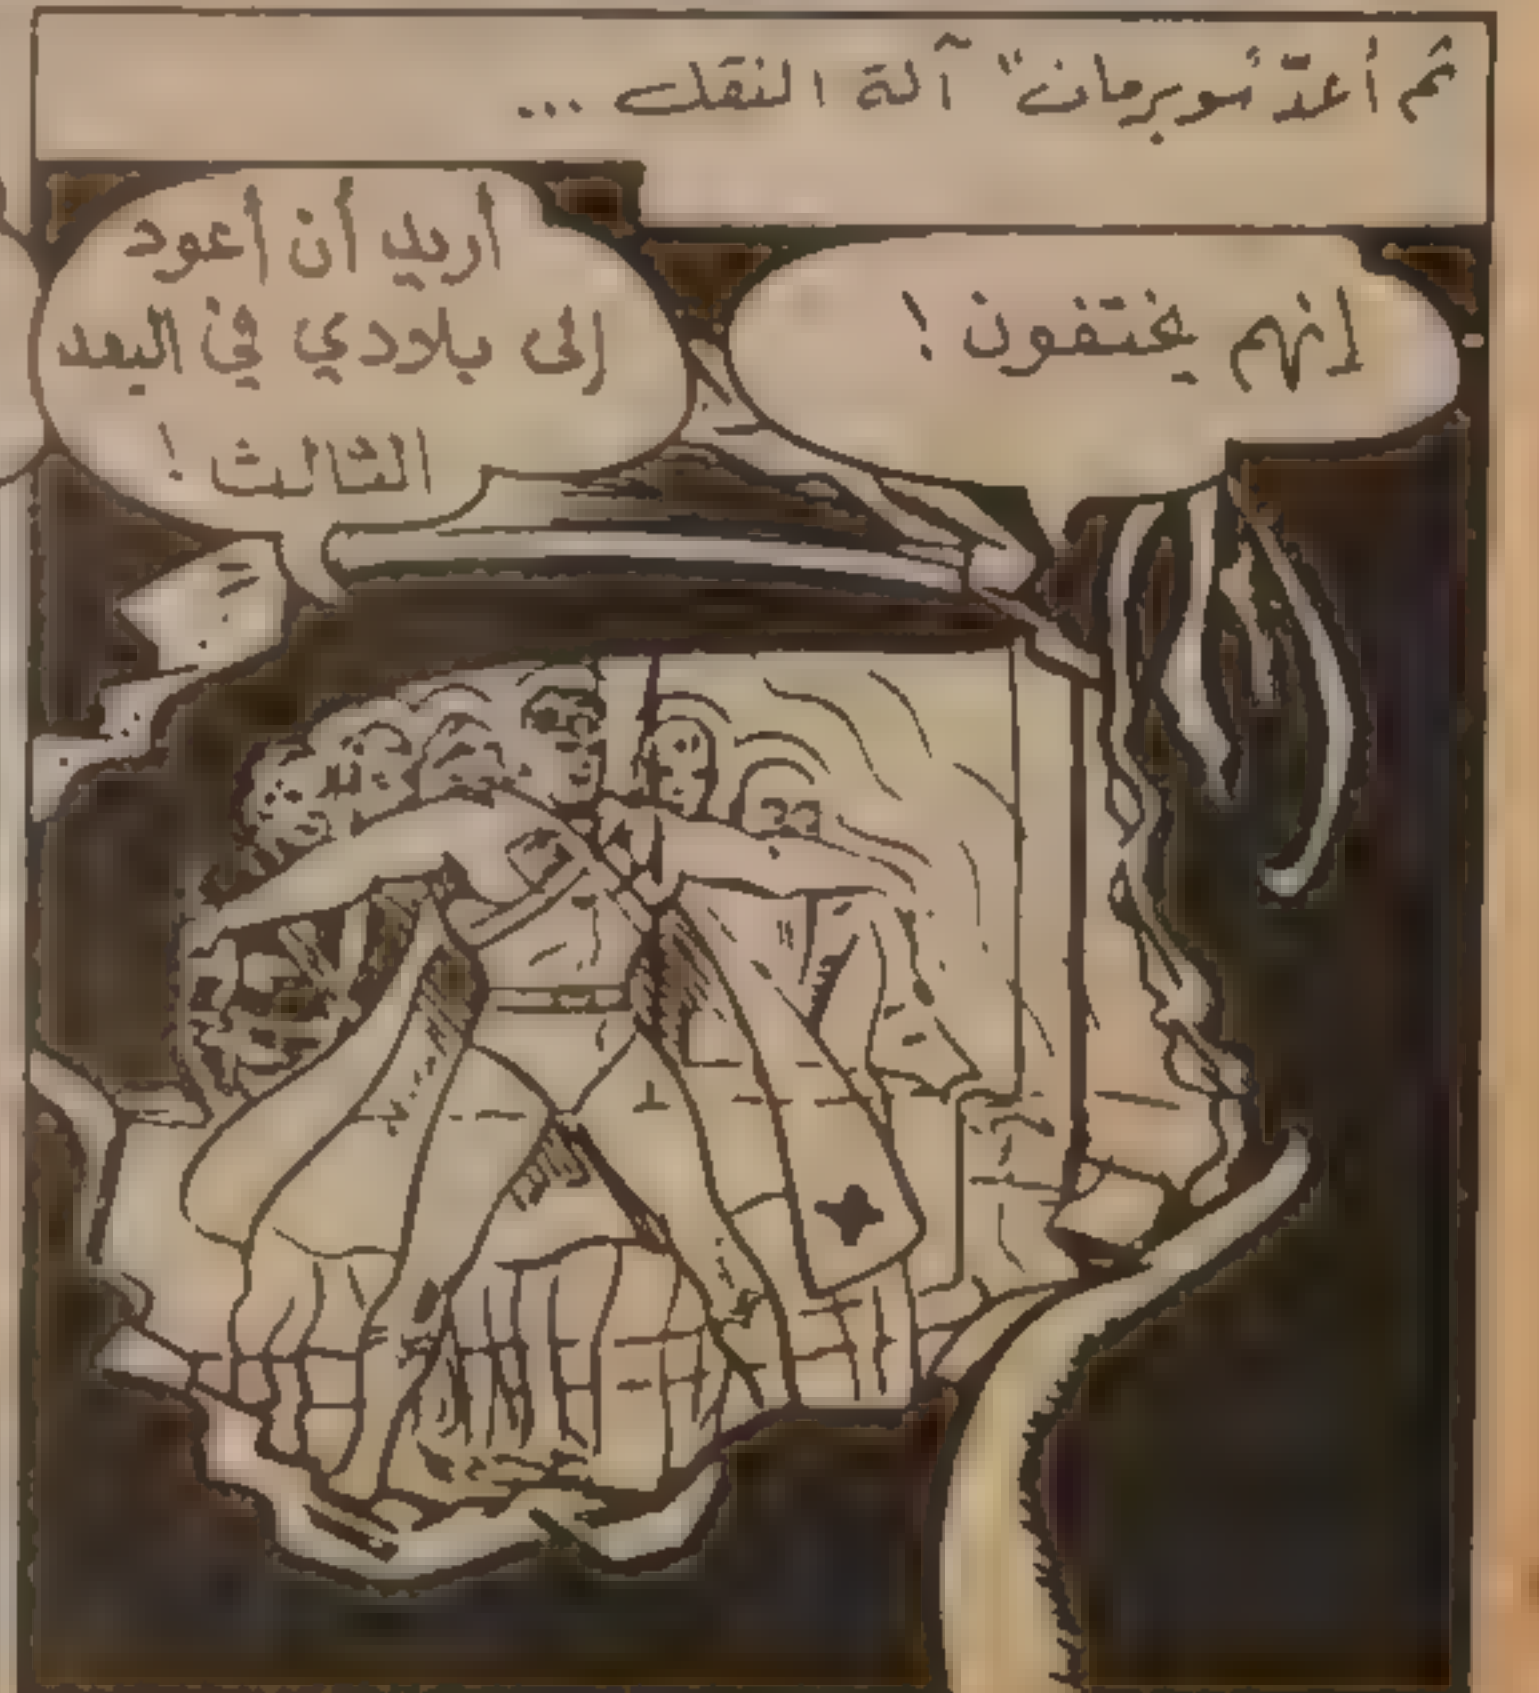 ثم أعدّ "سوبرمان" آلة النقل ...
إنهم يختفون !
أريد أن أعود
إلى بلادي في البعد
الثالث !